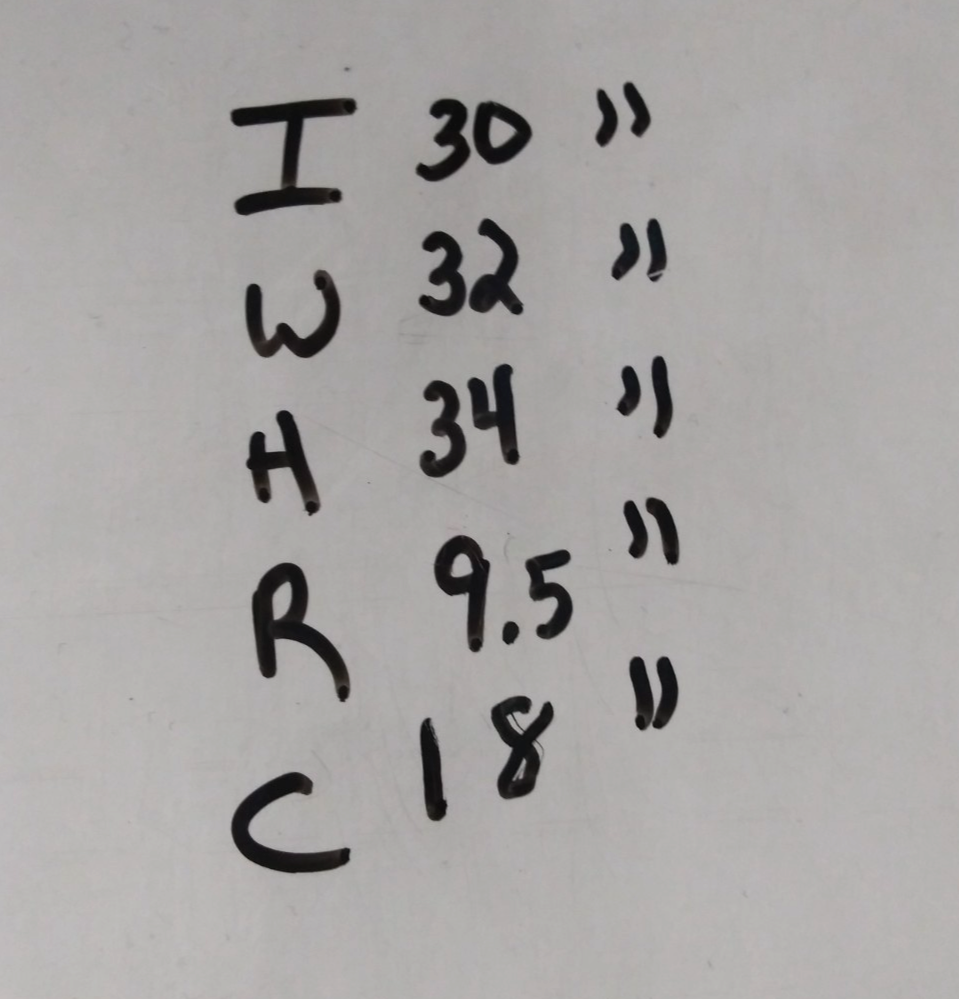 I 30 "
W 32 "
H 34 "
R 9.5 "
C 18 "